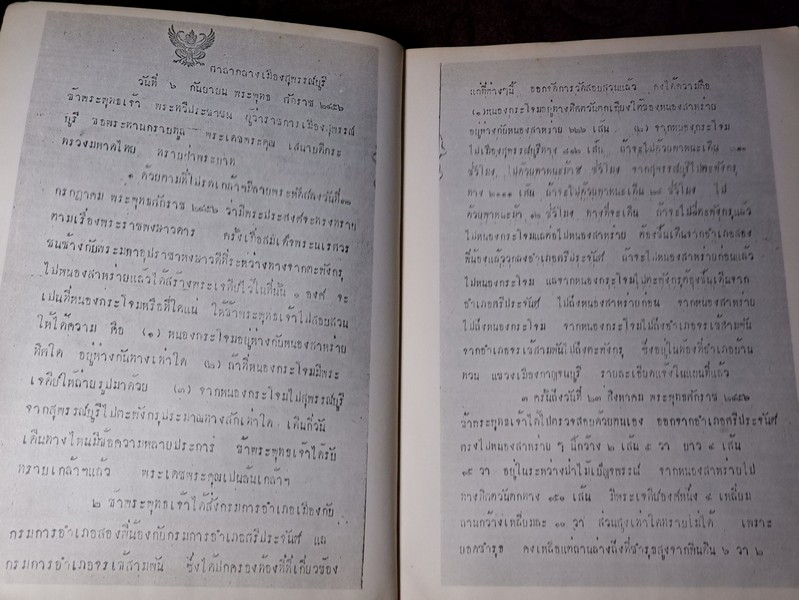 ศาลากลางเมืองสุพรรณบุรี
วันที่ ๖ กันยายน พระพุทธ ศักราช ๒๔๕๖
ข้าพระพุทธเจ้า พระทวีประชาชน ผู้ว่าราชการเมืองสุพรรณ์
บุรี ขอพระทานกราบทูล พระเดชพระคุณ เสนาบดีกระ
ทรวงมหาดไทย ทราบฝ่าพระบาท
๑ ด้วยตามที่โปรดเกล้าฯมีลายพระหัตถ์ลงวันที่
กรกฎาคม พระพุทธศักราช ๒๔๕๖ ว่ามีพระประสงค์จะทรงทราบ
ตามเรื่องพระราชพงษาวดาร ครั้งเมื่อสมเด็จพระนเรศวร
ชนช้างกับพระมหาอุปราชาหงษาวดีที่ระหว่างทางจากตะพังกรุ
ไปหนองสาหร่ายแล้วได้สร้างพระเจดีย์ไว้ในที่นั้น ๑ องค์ จะ
เปนที่หนองกระโจมหรือที่ใดแน่ ให้ข้าพระพุทธเจ้าไปสอบสวน
ให้ได้ความ คือ (๑) หนองกระโจมอยู่ห่างกับหนองสาหร่าย
ทิศใด อยู่ห่างกันทางเท่าใด (๒) ถ้าที่หนองกระโจมมีพระ
เจดีย์ให้ถ่ายรูปมาด้วย (๓) จากหนองกระโจมไปสุพรรณ์บุรี
จากสุพรรณ์บุรีไปตะพังกรุประมาณทางสักเท่าใด เดินกี่วัน
เดินทางไหนมีข้อความหลายประการ ข้าพระพุทธเจ้าได้รับ
ทราบเกล้าฯแล้ว พระเดชพระคุณเปนล้นเกล้าฯ
๒ ข้าพระพุทธเจ้าได้สั่งกรมการอำเภอเมืองกับ
กรมการอำเภอสองพี่น้องกับกรมการอำเภอศรีประจันต์ แล
กรมการอำเภอจรเข้สามพัน ซึ่งได้ปกครองท้องที่ที่เกี่ยวข้อง
แก่ที่ต่างๆนี้ ออกจัดการวัดสอบสวนแล้ว คงได้ความคือ
(๑) หนองกระโจมอยู่ทางทิศตวันตกเฉียงใต้ของหนองสาหร่าย
อยู่ห่างกับหนองสาหร่าย เส้น (๒) จากหนองกระโจม
ไปเมืองสุพรรณ์บุรีทาง เส้น ถ้าจะไปด้วยพาหนะเดิน
ชั่วโมง ไปด้วยพาหนะม้า ชั่วโมง จากสุพรรณ์บุรีไปตะพังกรุ
ทาง เส้น ถ้าจะไปด้วยพาหนะเดิน ชั่วโมง ไป
ด้วยพาหนะม้า ชั่วโมง ทางที่จะเดิน ถ้าจะไปตะพังกรุแล้ว
ไปหนองกระโจมแลต่อไปหนองสาหร่าย ต้องขึ้นเดินจากอำเภอสอง
พี่น้องแล้ววกลงอำเภอศรีประจันต์ ถ้าจะไปหนองสาหร่ายก่อนแล้ว
ไปหนองกระโจม แลจากหนองกระโจมไปตะพังกรุก็ต้องขึ้นเดินจาก
อำเภอศรีประจันต์ ไปถึงหนองสาหร่ายก่อน จากหนองสาหร่าย
ไปถึงหนองกระโจม จากหนองกระโจมไปถึงอำเภอจรเข้สามพัน
จากอำเภอจรเข้สามพันไปถึงตะพังกรุ ซึ่งอยู่ในท้องที่อำเภอบ้าน
ทวน แขวงเมืองกาญจนบุรี รายละเอียดแจ้งในแผนที่แล้ว
๓ ครั้นถึงวันที่ ๒๓ สิงหาคม พระพุทธศักราช ๒๔๕๖
ข้าพระพุทธเจ้าได้ไปตรวจสอบด้วยตนเอง ออกจากอำเภอศรีประจันต์
ตรงไปหนองสาหร่าย ๆ นี้กว้าง ๒ เส้น ๕ วา ยาว ๔ เส้น
๑๕ วา อยู่ในระหว่างป่าไม้เบ็ญจพรรณ์ จากหนองสาหร่ายไป
ทางทิศตวันตกทาง ๑๕๑ เส้น มีพระเจดีย์องค์หนึ่ง ๔ เหลี่ยม
ฐานกว้างเหลี่ยมละ ๑๐ วา ส่วนสูงเท่าใดทราบไม่ได้ เพราะ
ยอดชำรุด คงเหลือแต่ฐานล่างถึงที่ชำรุดสูงจากพื้นดิน ๖ วา ๒